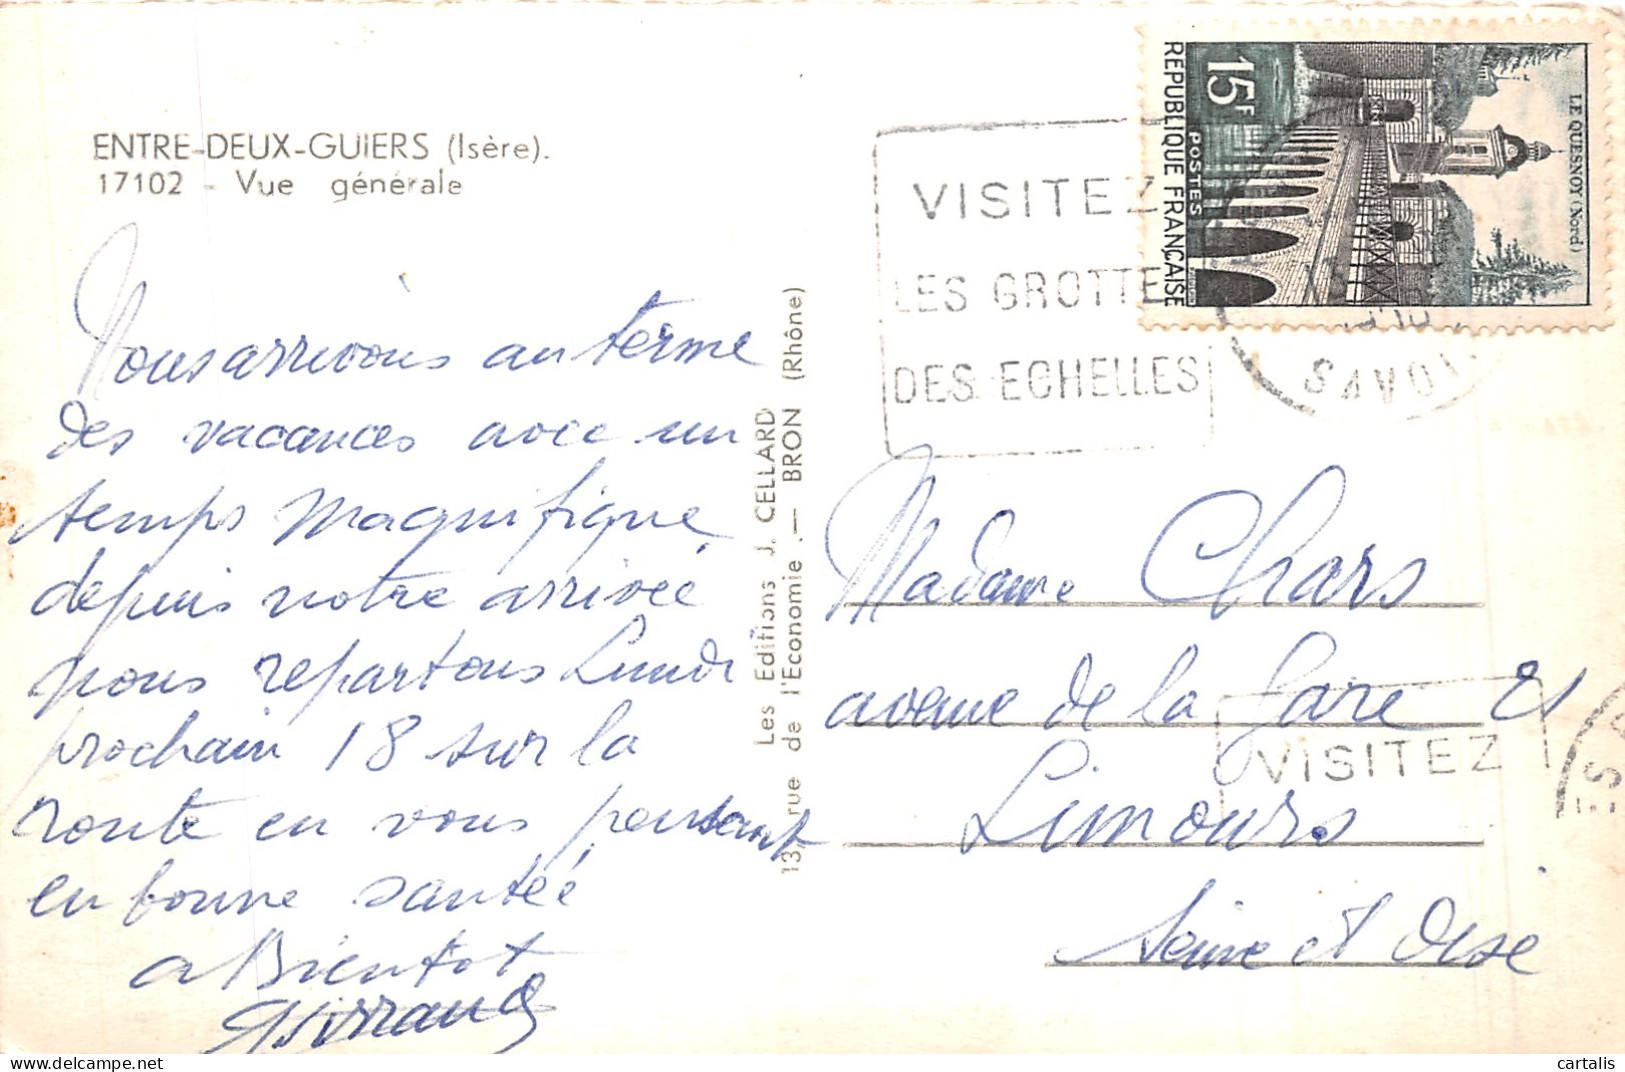 ENTRE-DEUX-GUIERS (Isère).
17102 - Vue générale
Nous arrivons au terme
des vacances avec un
temps magnifique
depuis notre arrivée
nous repartons Lundi
prochain 18 sur la
route en vous pensant
en bonne santée
a Bientot
Les Editions J. CELLARD
13, rue de l'Economie. — BRON (Rhône)
VISITEZ
LES GROTTE
DES ECHELLES
15F
POSTES
REPUBLIQUE FRANÇAISE
LE QUESNOY (Nord)
SAVOI
Madame Chars
avenue de la Gare
Limours
Seine et Oise
VISITEZ
cartalis